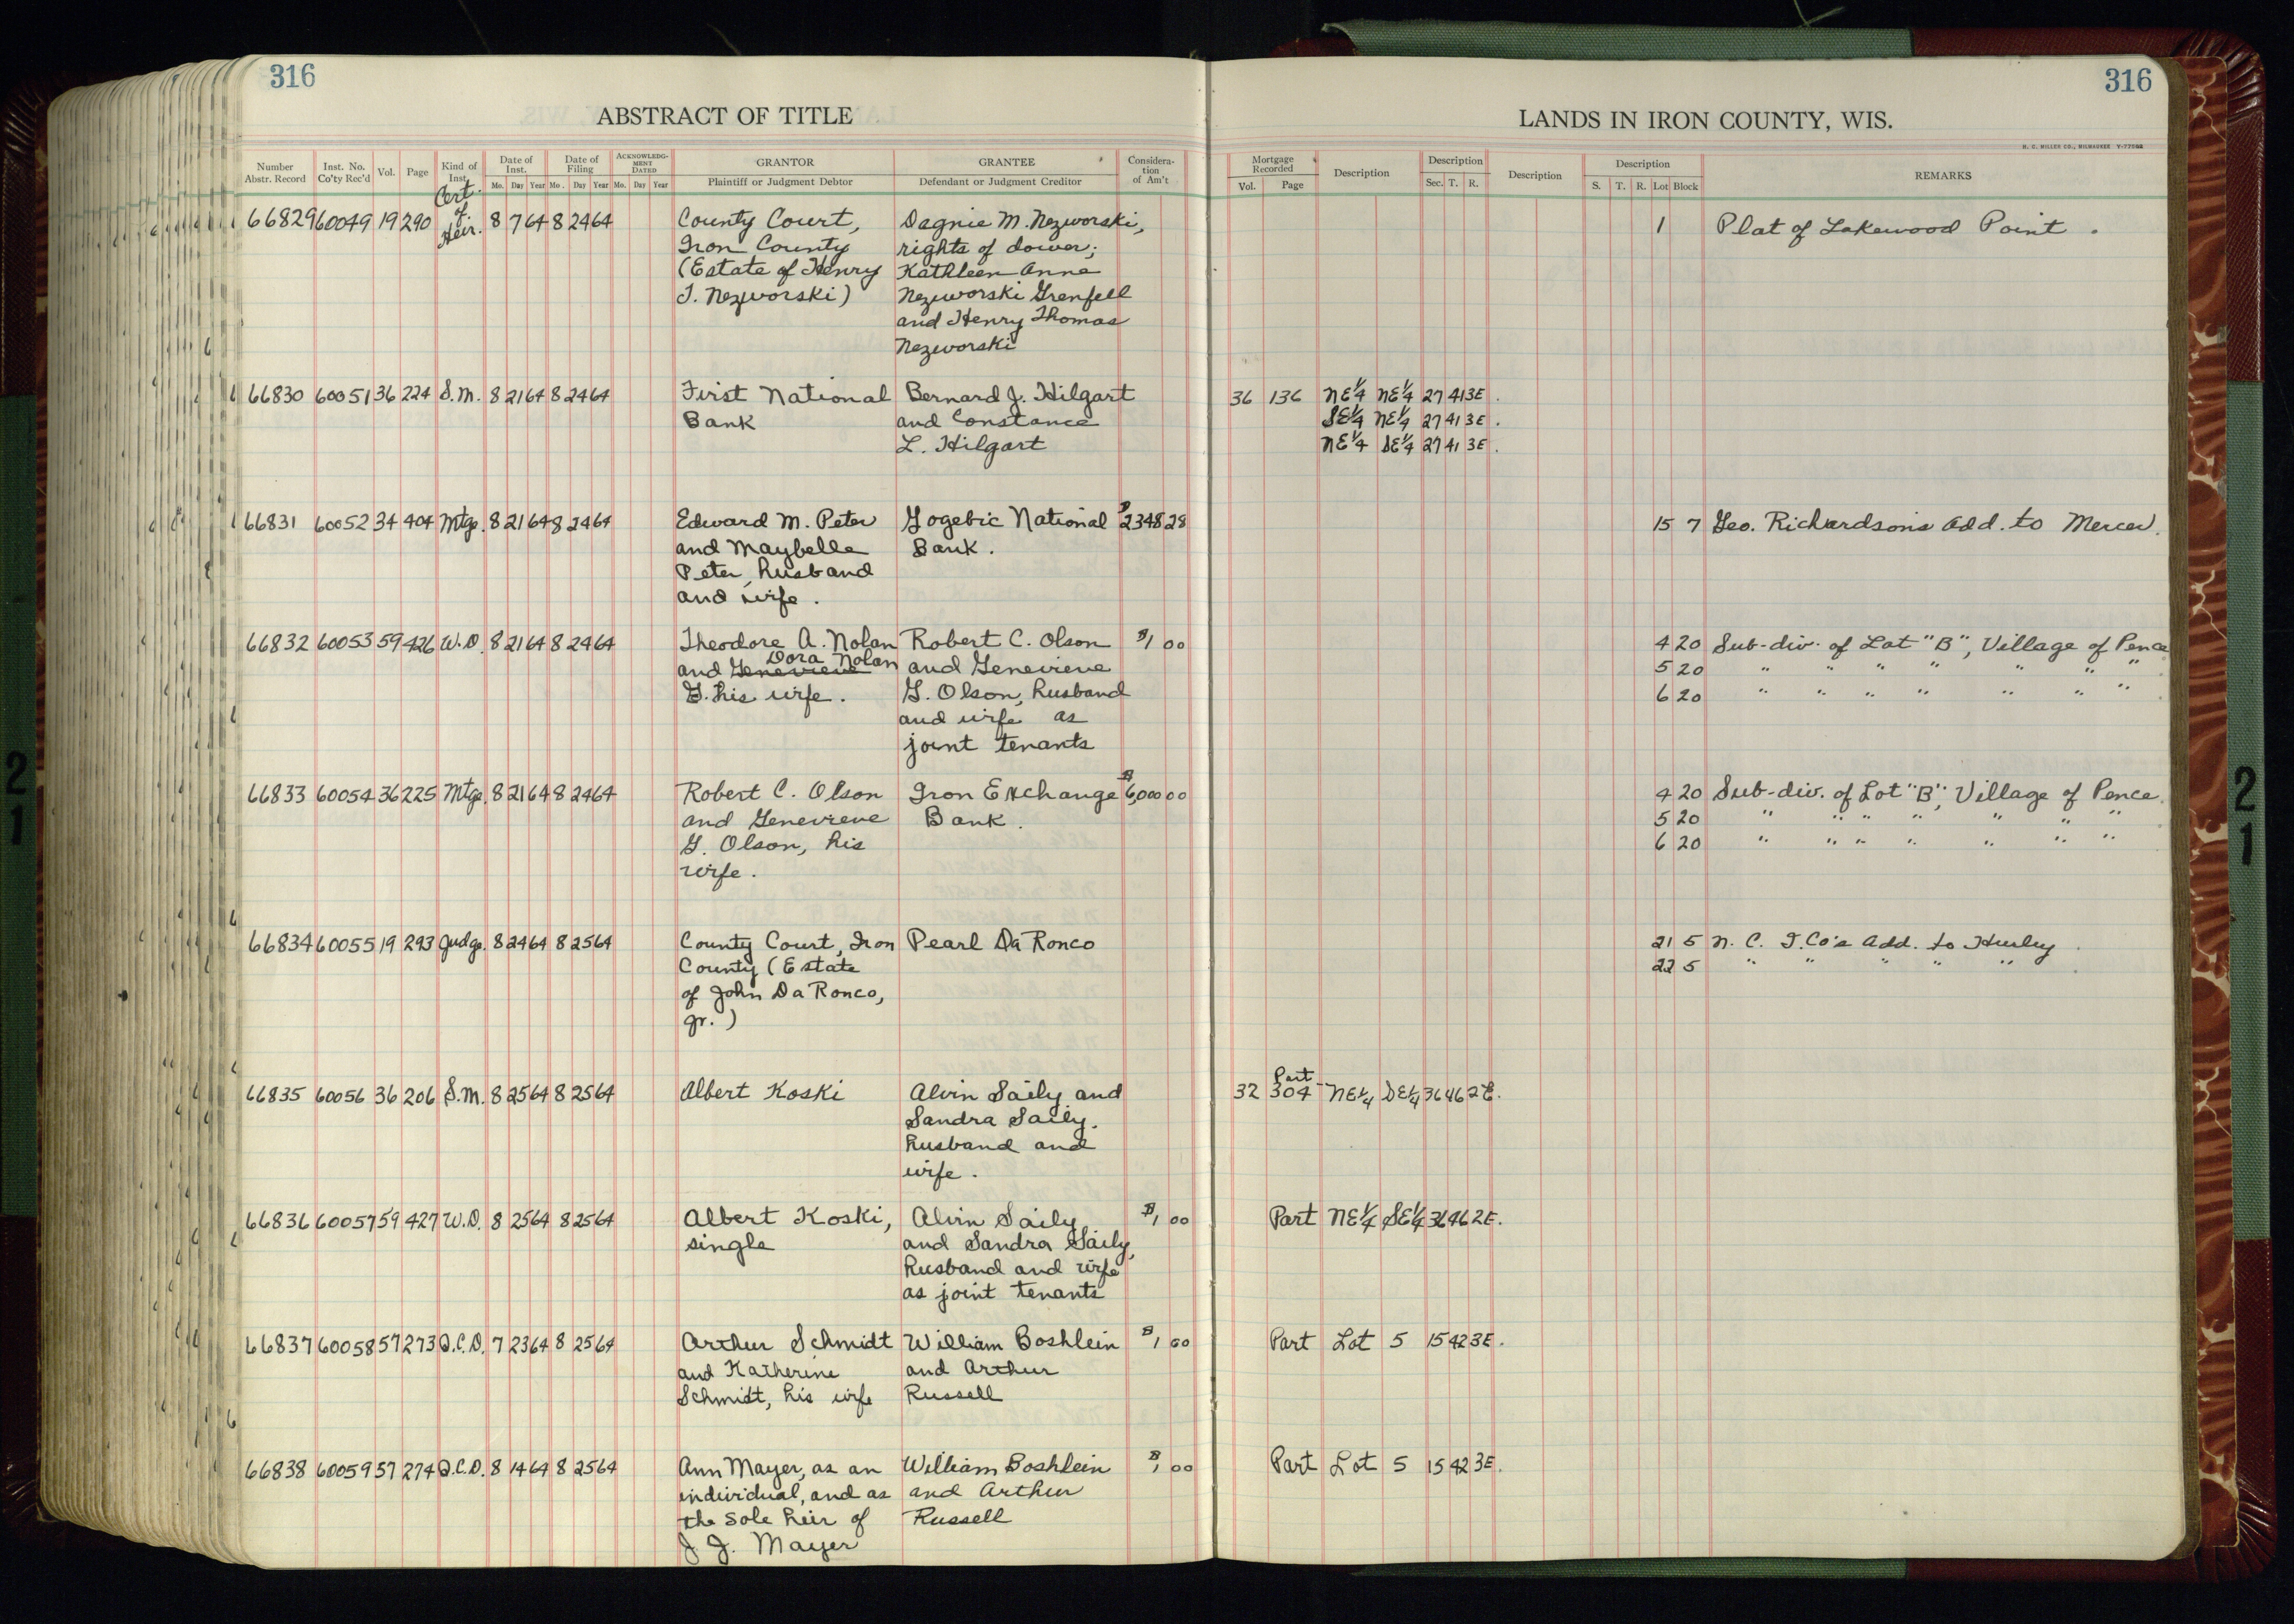 316
316
ABSTRACT OF TITLE
LANDS IN IRON COUNTY, WIS.
H. C. MILLER CO., MILWAUKEE Y-77508
Number Abstr. Record | Inst. No. Co'ty Rec'd | Vol. | Page | Kind of Inst. | Date of Inst. Mo. Day Year | Date of Filing Mo. Day Year | ACKNOWLEDGMENT DATED Mo. Day Year | GRANTOR Plaintiff or Judgment Debtor | GRANTEE Defendant or Judgment Creditor | Consideration of Am't | Mortgage Recorded Vol. Page | Description | Description Sec. T. R. | Description | Description S. T. R. Lot Block | REMARKS
66829 60049 19 290 Cert. of Heir. 8 7 64 8 24 64 County Court, Dagnie M. Nezworski, 1 Plat of Lakewood Point.
Iron County rights of dower;
(Estate of Henry Kathleen Anne
T. Nezworski) Nezworski Grenfell
and Henry Thomas
Nezworski
66830 60051 36 224 S.M. 8 21 64 8 24 64 First National Bernard J. Hilgart 36 136 NE¼ NE¼ 27 41 3E.
Bank and Constance SE¼ NE¼ 27 41 3E.
L. Hilgart NE¼ SE¼ 27 41 3E.
66831 60052 34 404 Mtge. 8 21 64 8 24 64 Edward M. Peter Gogebic National $2348 28 15 7 Geo. Richardson's Add. to Mercer.
and Maybelle Bank.
Peter, husband
and wife.
66832 60053 59 426 W.D. 8 21 64 8 24 64 Theodore A. Nolan Robert C. Olson $1 00 4 20 Sub-div. of Lot "B", Village of Pence
Dora Nolan
and Genevieve and Genevieve 5 20 " " " " " " "
G. his wife. G. Olson, husband 6 20 " " " " " " "
and wife as
joint tenants
66833 60054 36 225 Mtge. 8 21 64 8 24 64 Robert C. Olson Iron Exchange $6,000 00 4 20 Sub-div. of Lot "B", Village of Pence.
and Genevieve Bank. 5 20 " " " " " " "
G. Olson, his 6 20 " " " " " " "
wife.
66834 60055 19 293 Judg. 8 24 64 8 25 64 County Court, Iron Pearl Da Ronco 21 5 N. C. I. Co's Add. to Hurley.
County (Estate 22 5 " " " " "
of John Da Ronco,
Jr.)
66835 60056 36 206 S.M. 8 25 64 8 25 64 Albert Koski Alvin Saily and 32 304 Part NE¼ SE¼ 36 46 2E.
Sandra Saily,
husband and
wife.
66836 60057 59 427 W.D. 8 25 64 8 25 64 Albert Koski, Alvin Saily $1 00 Part NE¼ SE¼ 36 46 2E.
single and Sandra Saily,
husband and wife
as joint tenants
66837 60058 57 273 Q.C.D. 7 23 64 8 25 64 Arthur Schmidt William Boshlein $1 00 Part Lot 5 15 42 3E.
and Katherine and Arthur
Schmidt, his wife Russell
66838 60059 57 274 Q.C.D. 8 14 64 8 25 64 Ann Mayer, as an William Boshlein $1 00 Part Lot 5 15 42 3E.
individual, and as and Arthur
the sole heir of Russell
J. J. Mayer
21
21